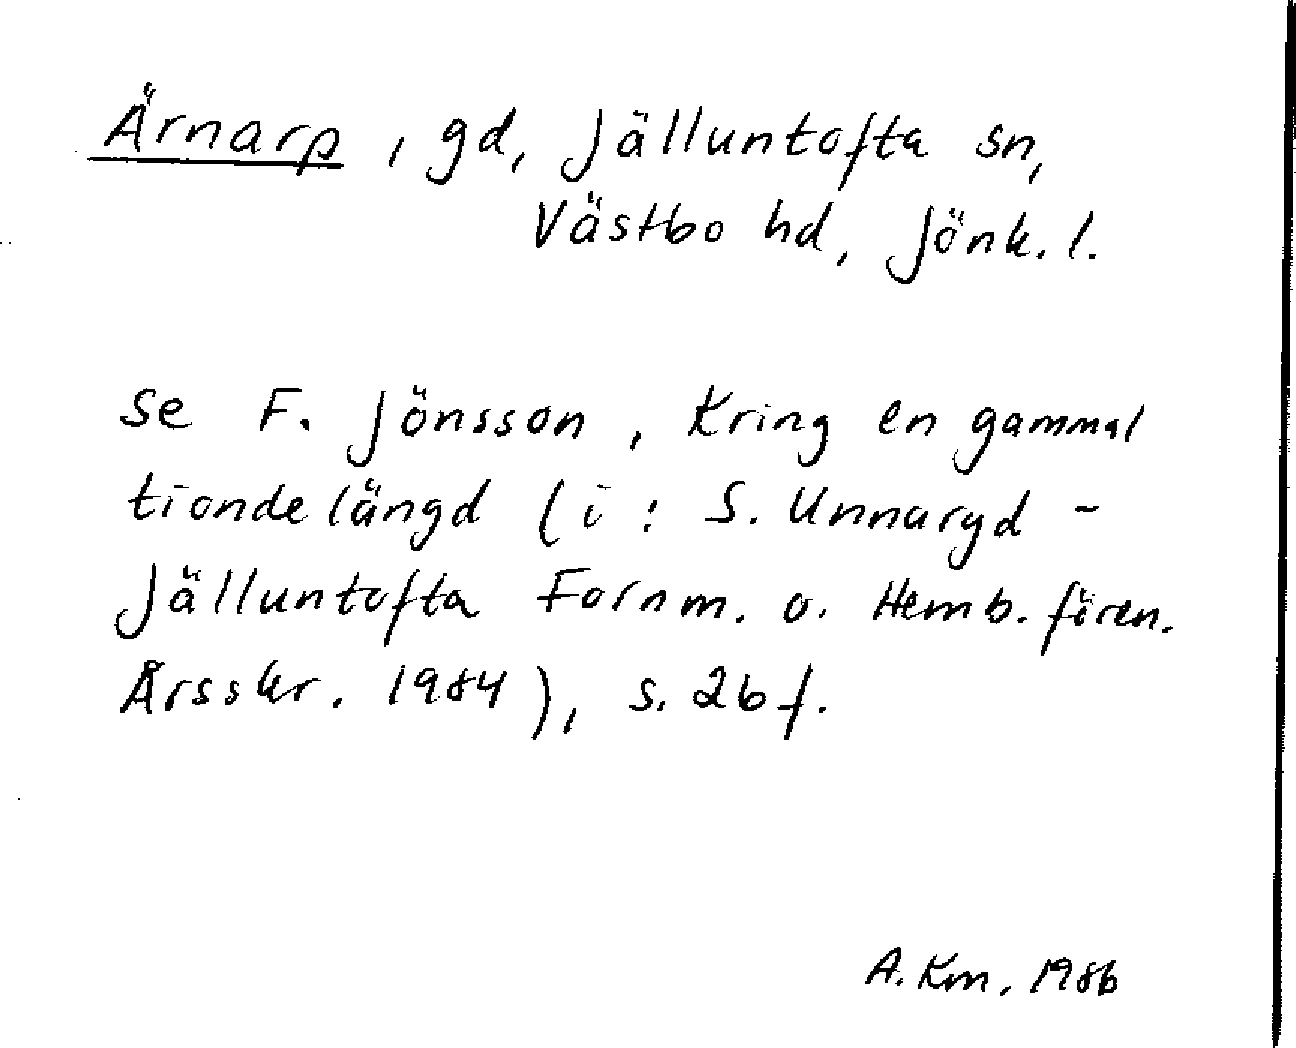 Ärnarp, gd, Jälluntofta sn,
Västbo hd, Jönk. l.
se F. Jönsson, Kring en gammal
tiondelängd (i: S. Unnaryd -
Jälluntofta Fornm. o. Hemb. fören.
Årsskr. 1984), s. 26 f.
A. Km, 1986